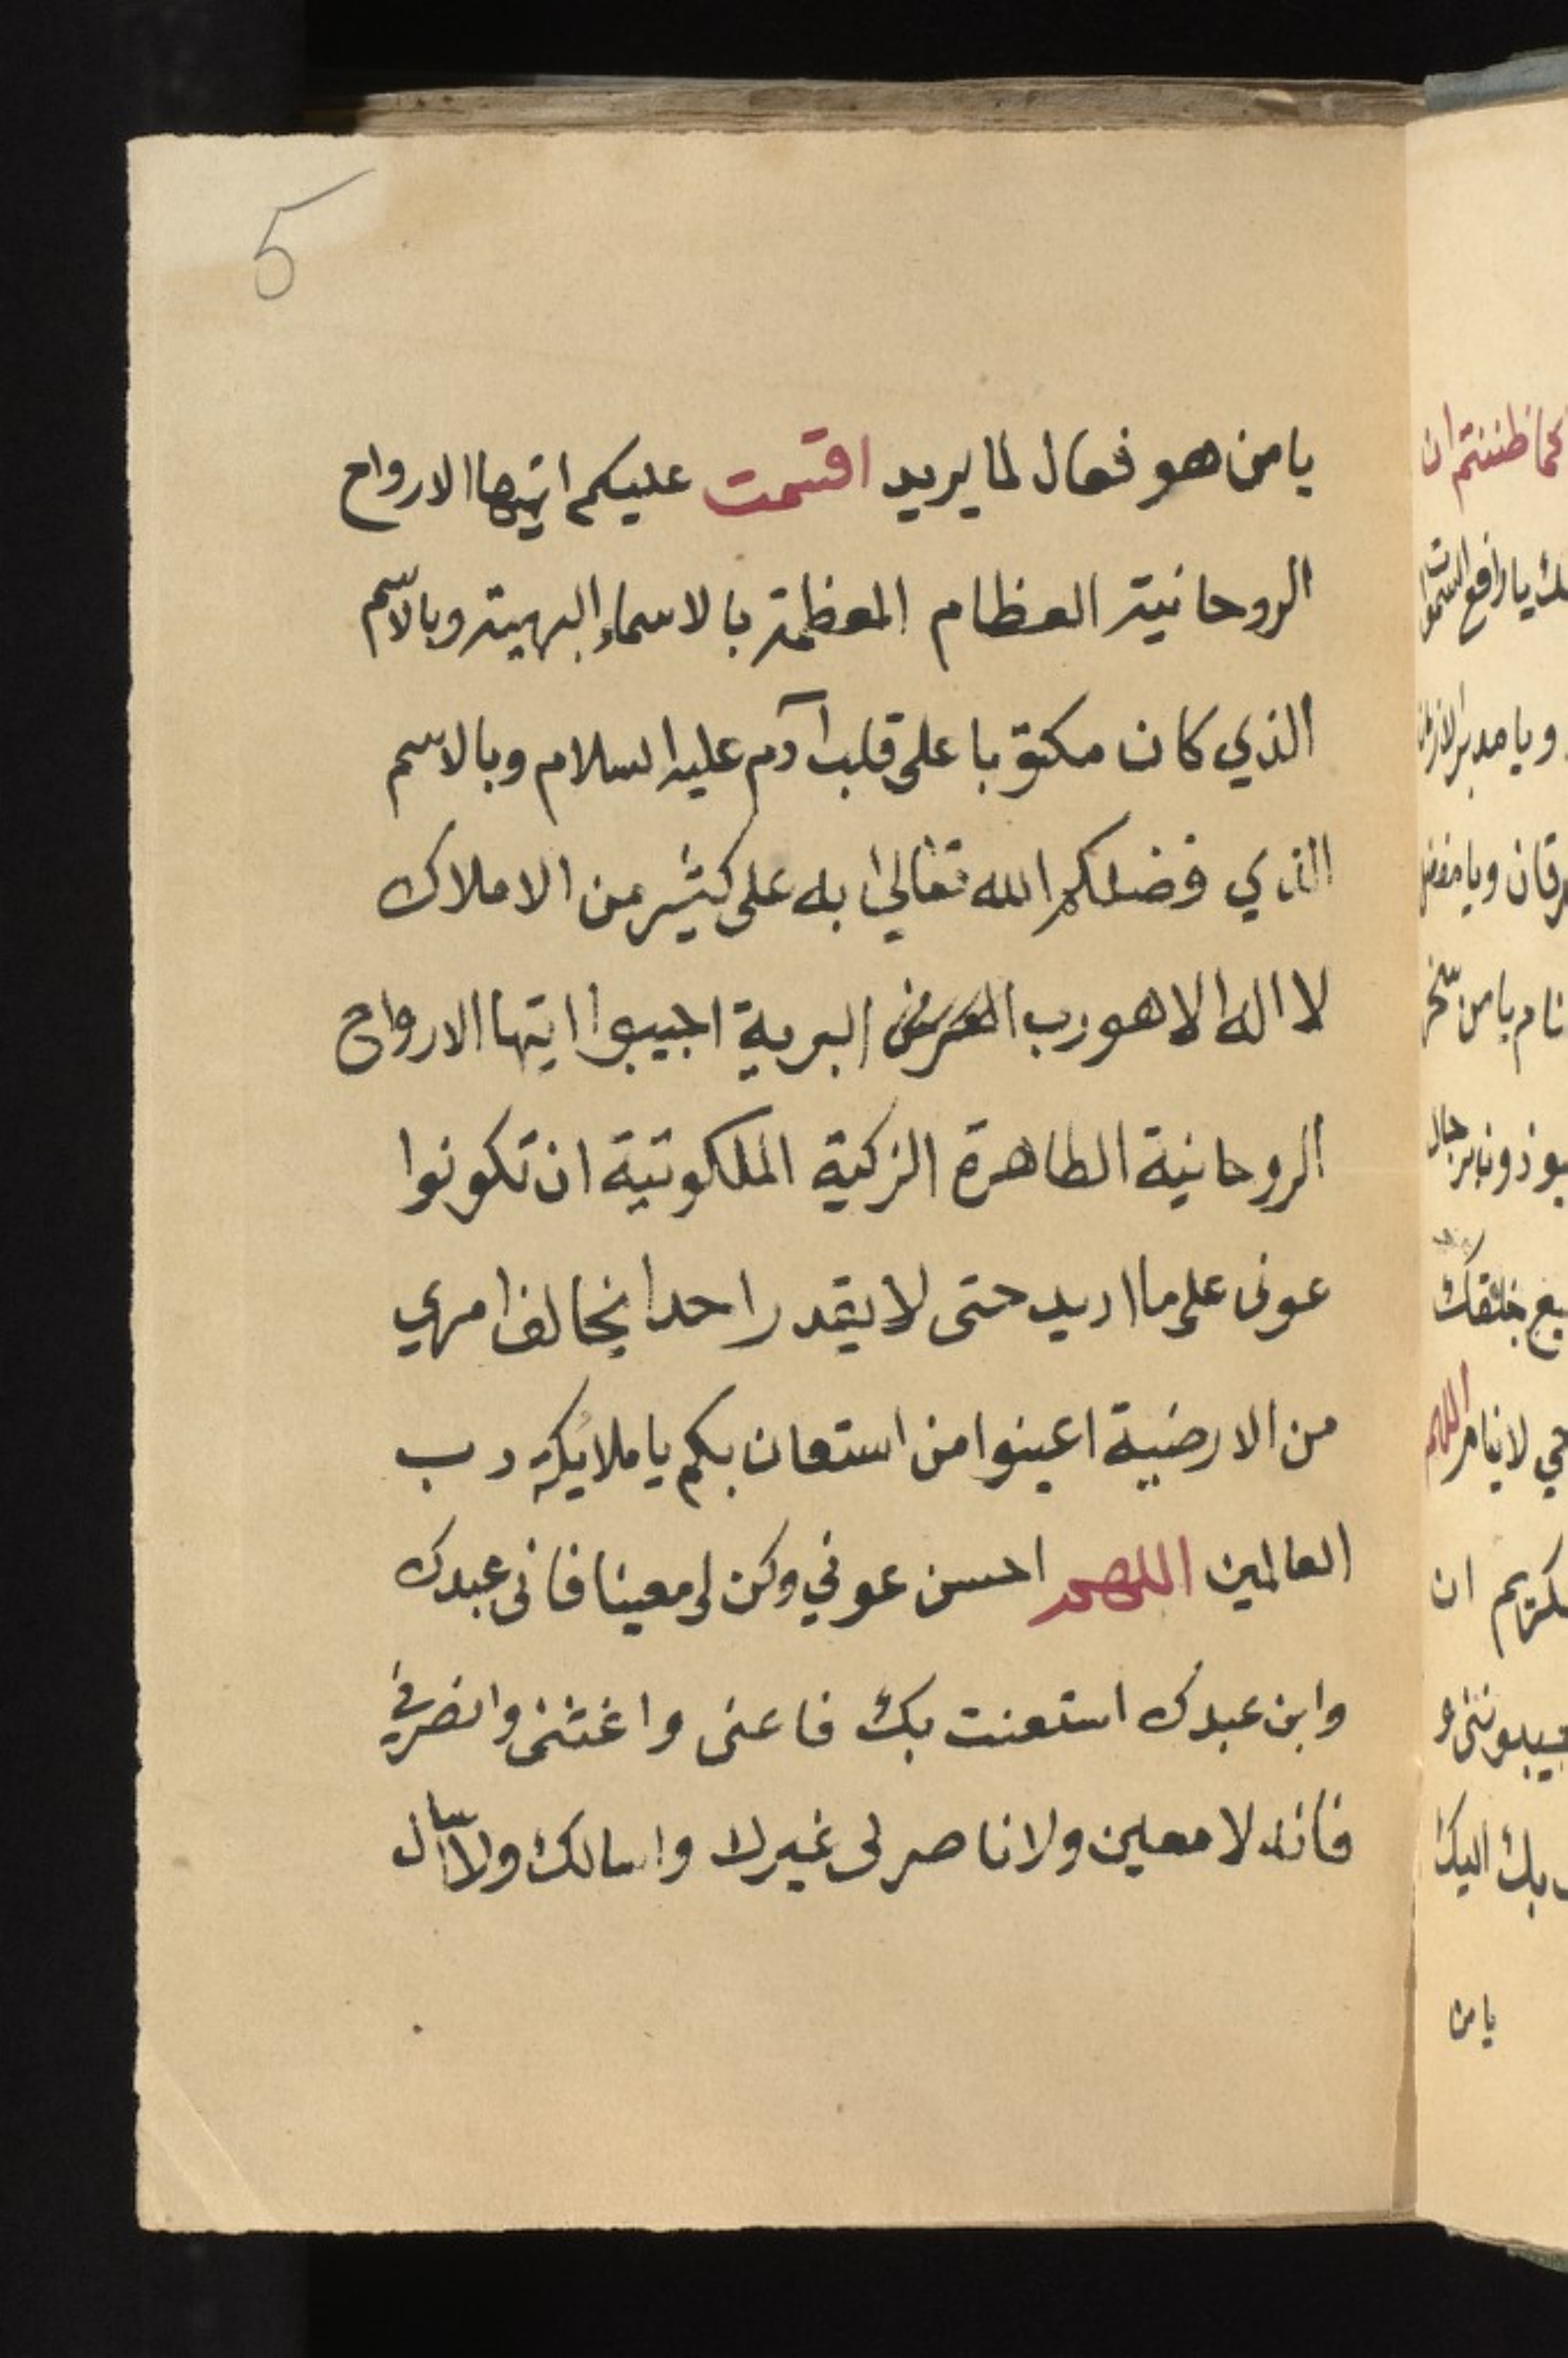 5
يا من هو فعال لما يريد اقسمت عليكم ايتها الارواح
الروحانية العظام المعظمة بالاسماء البهية وبالاسم
الذي كان مكتوبا على قلب آدم عليه السلام وبالاسم
الذي فضلكم الله تعالى به على كثير من الاملاك
لا اله الا هو رب البرية اجيبوا ايتها الارواح
الروحانية الطاهرة الزكية الملكوتية ان تكونوا
عونى على ما اريد حتى لا يقدر احدا يخالف امري
من الارضية اعينوا من استعان بكم يا ملائكة رب
العالمين اللهم احسن عوني وكن لى معينا فانى عبدك
وابن عبدك استعنت بك فاعنى واغثنى وانصرني
فانه لا معين ولا ناصر لى غيرك واسالك ولا اسال
كما ظننتم ان
يا رافع
ويا مدبر
نام يا من سخر
خلقك
حي لا ينام اللهم
ان
بك اليك
يا من